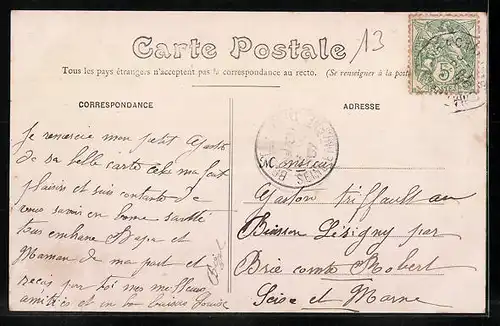 13
Carte Postale
Tous les pays étrangers n'acceptent pas la correspondance au recto. (Se renseigner à la poste
CORRESPONDANCE
ADRESSE
5
Je remercie mon petit Gaston
de sa belle carte cela ma fait
plaisirs et suis contante de
vous savoir en bonne santté
tous embrase Papa et
Maman de ma part et
reçois par toi mes meilleurs
amitiés et un bon baiser Louise
Monsieur
Gaston Triffault au
Buisson Lésigny par
Brie comte Robert
Seine et Marne